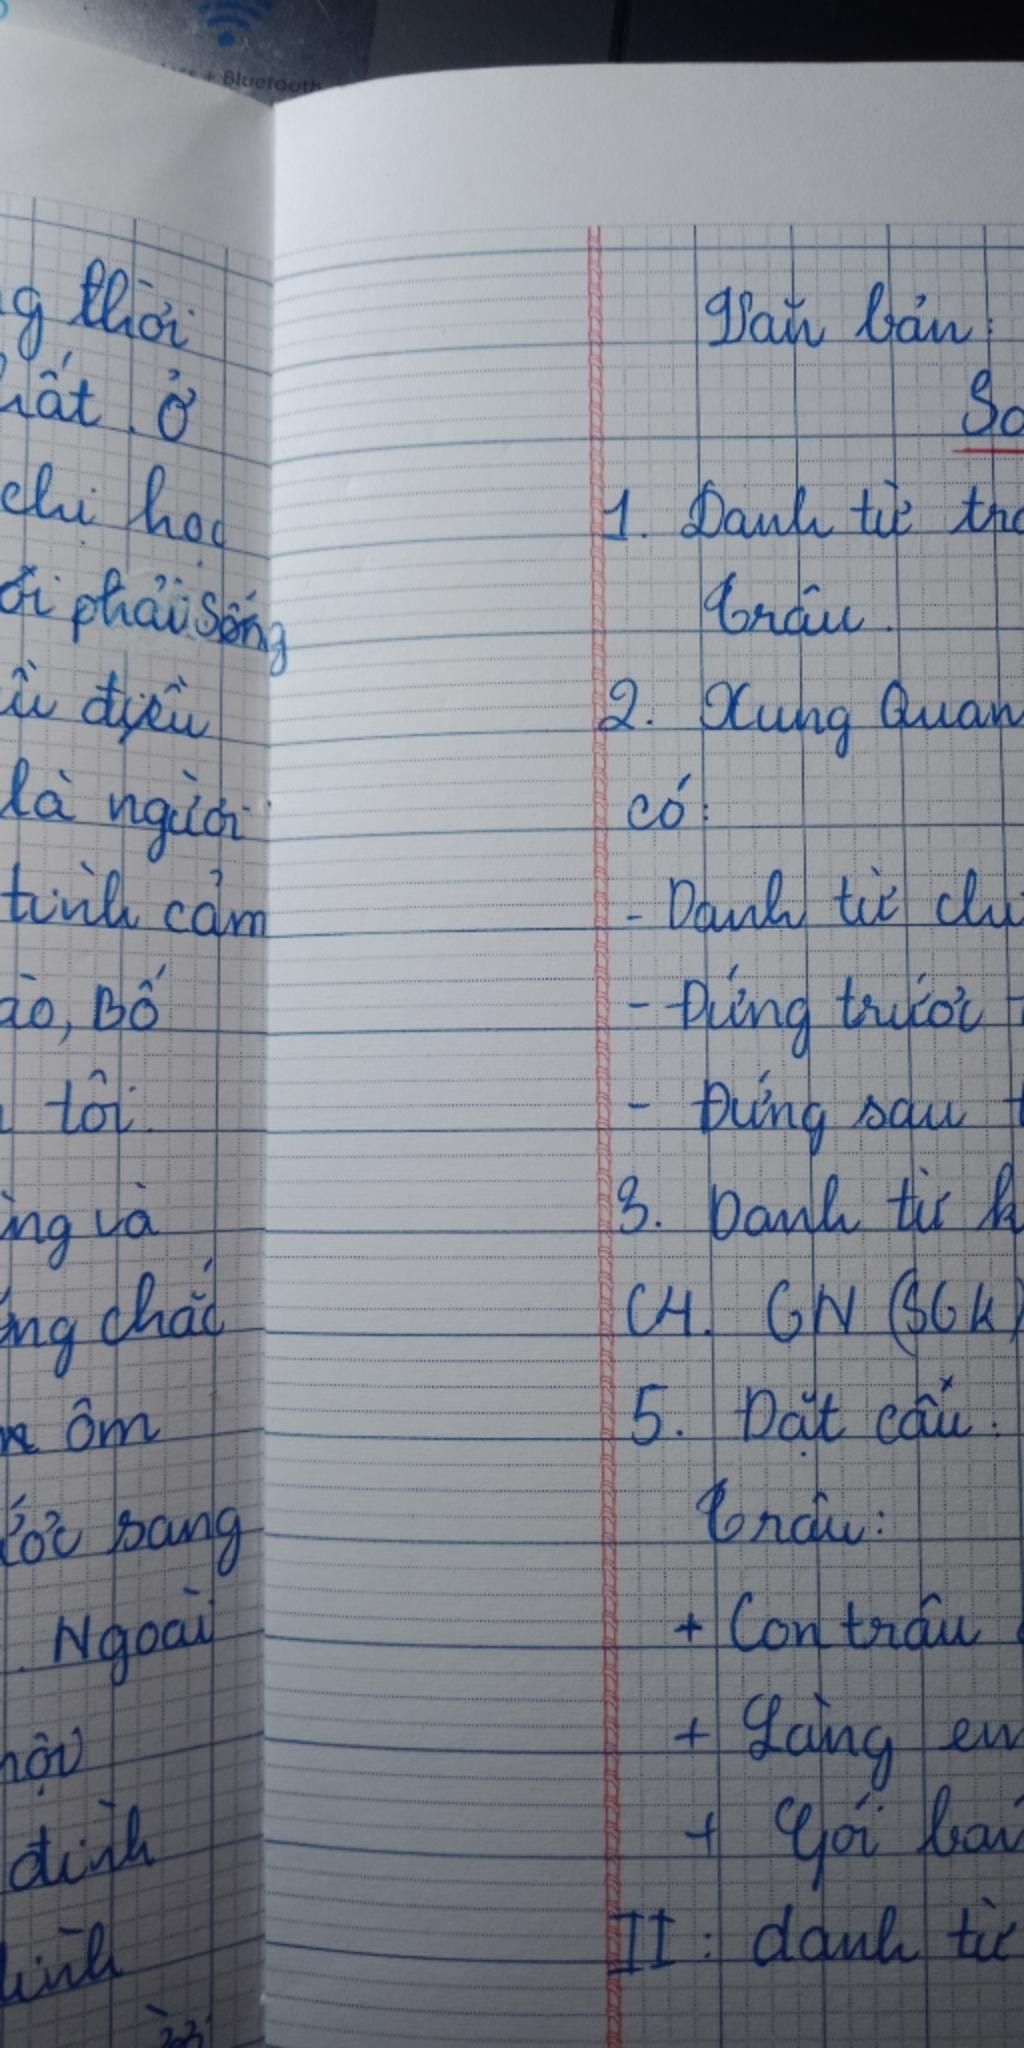 + Bluetooth
g thời
ất. ở
chị học
ơi phải sống
điều
là người
tình cảm
ào, Bố
tôi.
ng và
ng chắc
ôm
ước sang
. Ngoài
một
đình
tình
Văn bản:
So
1. Danh từ tro
trâu.
2. Xung Quan
có:
- Danh từ chỉ
- Đứng trước t
- Đứng sau t
3. Danh từ k
C4. GN (SGK)
5. Đặt câu:
trâu:
+ Con trâu
+ Làng em
+ Gói bán
II: danh từ